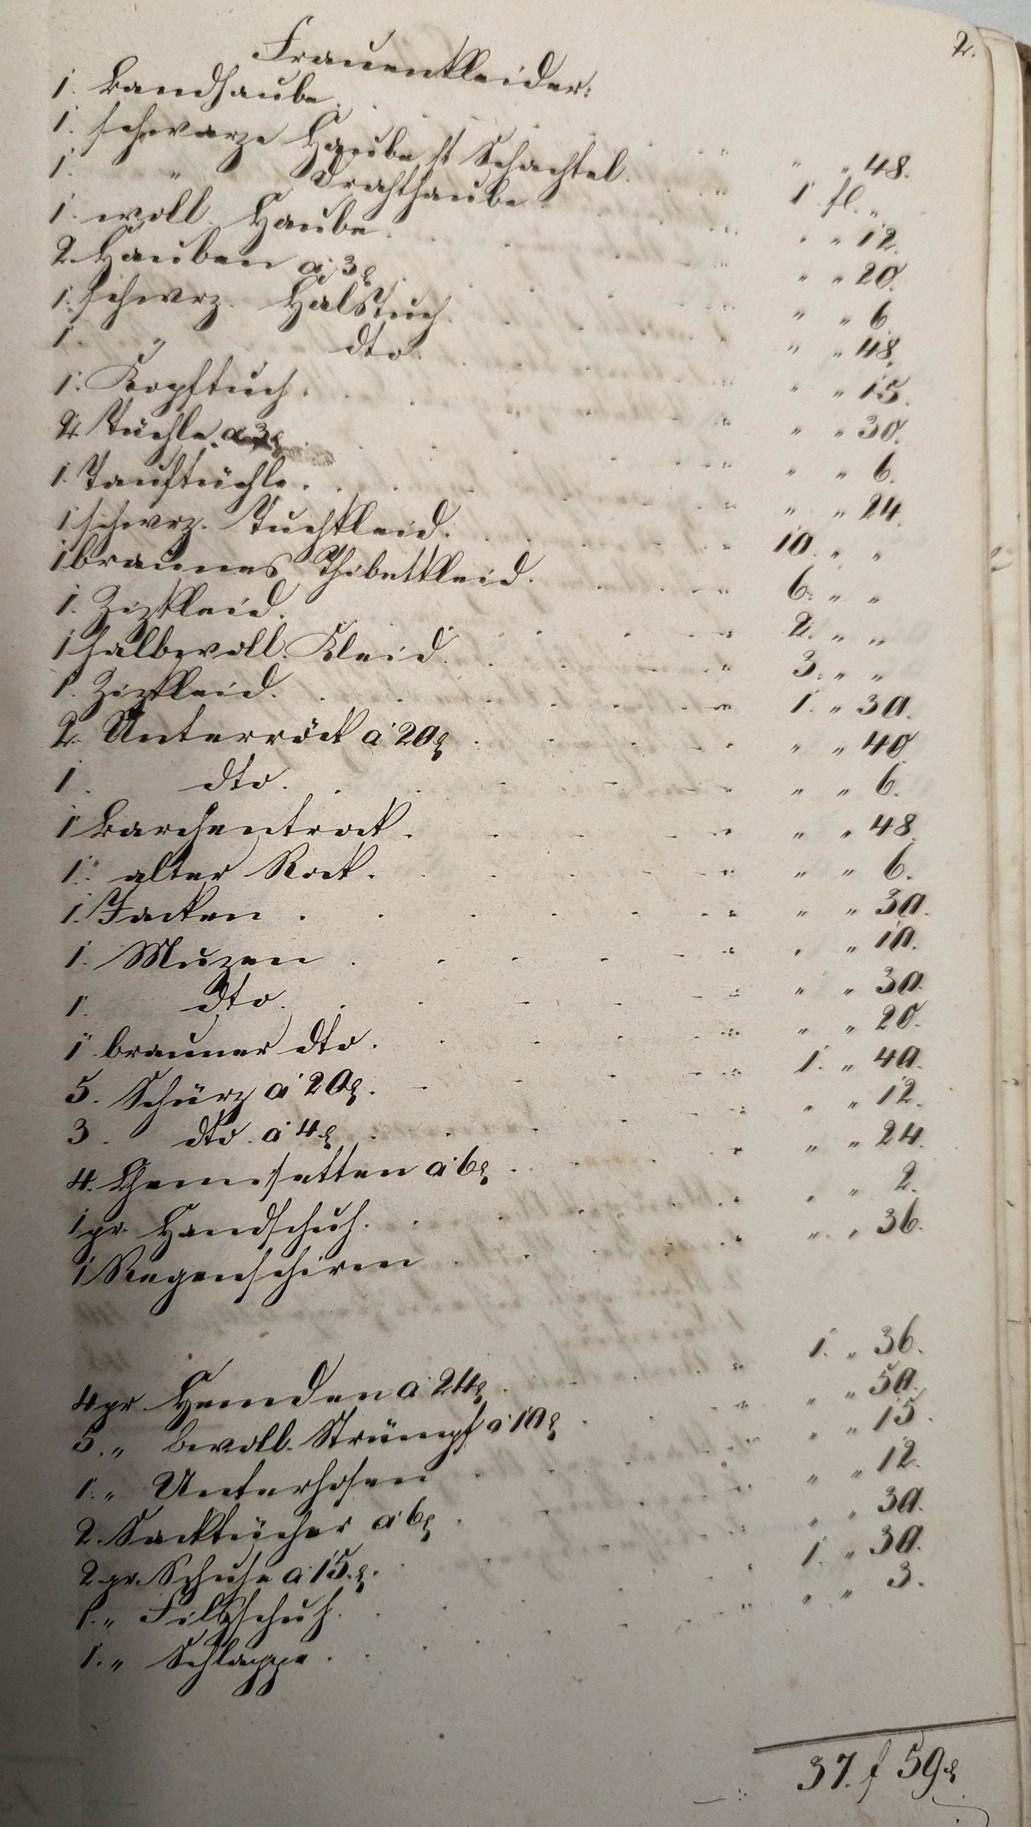 2.
Frauenkleider:
1. Bandhaube. " " 48.
1. schwarze Haube st Schachtel. 1. fl. "
1. " Drahthaube " " 12.
1. woll. Haube. " " 20.
2. Hauben a 3x " " 6.
1. schwrz. Halstuch. " " 48.
1. " dto. " " 15.
1. Kopftuch. " " 30.
2. Tüchle. a 3x " " 6.
1. Tauftüchle. " " 24.
1 schwrz. Tuchkleid. 10. " "
1 braunes Thibetkleid. 6. " "
1. Zizkleid. 2. " "
1 halbwoll. Kleid. 3. " "
1. Zizkleid. 1. " 30.
2. Unterröck a 20x " " 40
1. dto. " " 6.
1 Barchentrock. " " 48.
1. alter Rock. " " 6.
1. Jacken. " " 30.
1. Muzen. " " 10.
1. dto. " " 30.
1 brauner dto. " " 20.
5. Schürz a 20x. 1. " 40.
3. dto. a 4x " " 12.
4. Chemisetten a 6x " " 24.
1 pr. Handschuh. " " 2.
1 Regenschirm " " 36.
4 pr Hemden a 24x. 1. " 36.
5. " bwoll. Strümpf a 10x " " 50.
1. " Unterhosen " " 15.
2. Sacktücher a 6x " " 12.
2 pr. Schuhe a 15.x. " " 30.
1. " Filzschuh. 1. " 30.
1. " Schlappe. " " 3.
37. f 59x